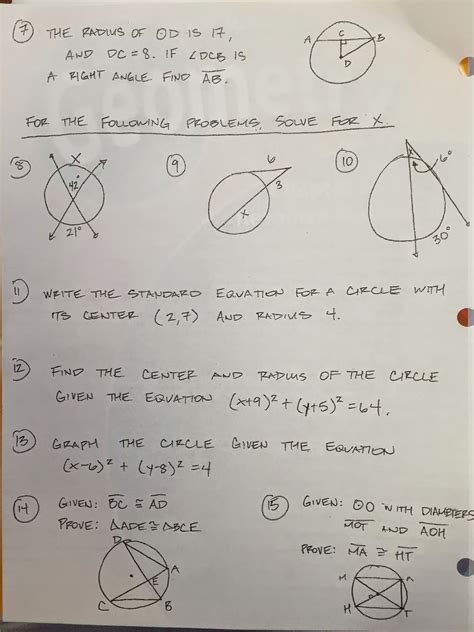 7 THE RADIUS OF ⊙D IS 17,
AND DC = 8. IF ∠DCB IS
A RIGHT ANGLE FIND AB.
A C B
D
FOR THE FOLLOWING PROBLEMS, SOLVE FOR X.
8 X
42°
21°
9 6
3
X
10 X 6°
30°
11 WRITE THE STANDARD EQUATION FOR A CIRCLE WITH
ITS CENTER (2,7) AND RADIUS 4.
12 FIND THE CENTER AND RADIUS OF THE CIRCLE
GIVEN THE EQUATION (x+9)² + (y+5)² = 64.
13 GRAPH THE CIRCLE GIVEN THE EQUATION
(x-6)² + (y-8)² = 4
14 GIVEN: BC ≅ AD
PROVE: △ADE ≅ △BCE
D
A
E
C B
15 GIVEN: ⊙O WITH DIAMETERS
MOT AND AOH
PROVE: MA ≅ HT
M A
O
H T